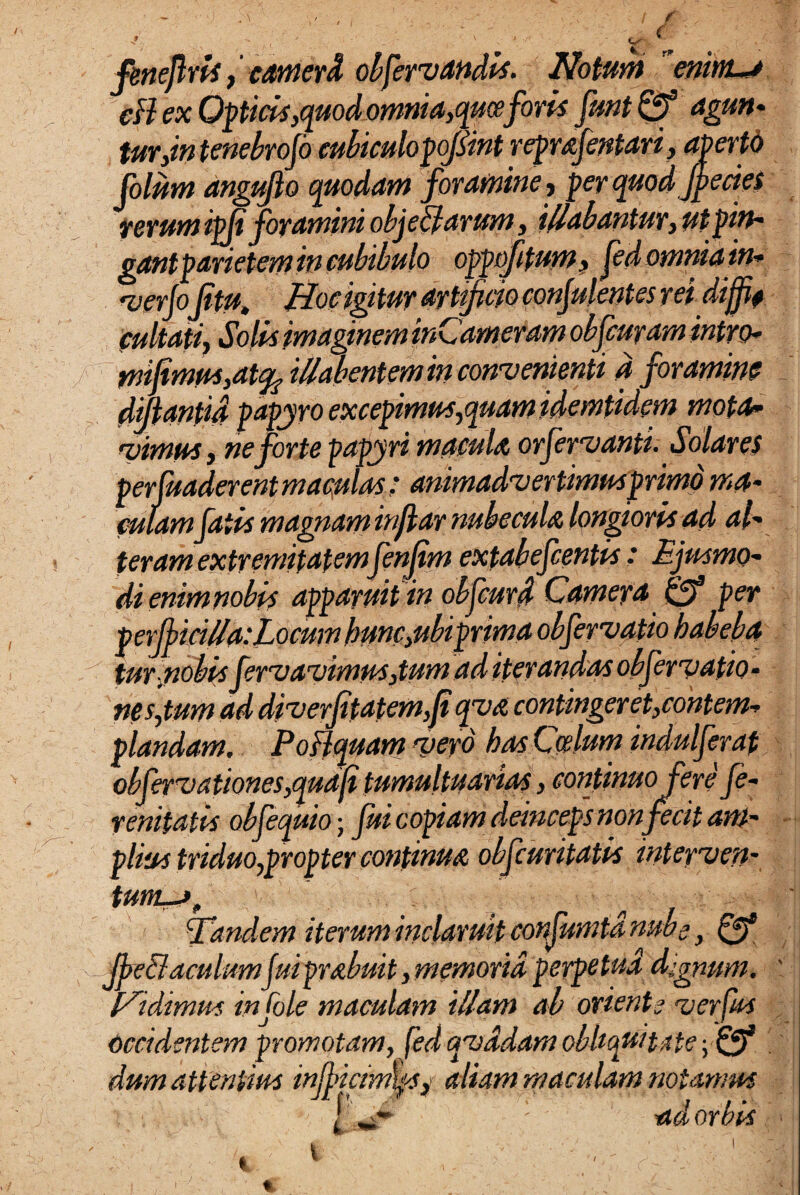 feneſtris, camerâ obſervandis. Notum enim
eſt ex Opticis, quod omnia, quæ foris ſunt & agun-
tur, in tenebroſo cubiculo poſsint repræſentari, aperto
ſolùm anguſto quodam foramine, per quod ſpecies
rerum ipſi foramini objectarum, illabantur, ut pin-
gant parietem in cubibulo oppoſitum, ſed omnia in-
verſo ſitu. Hoc igitur artificio conſulentes rei diffi-
cultati, Solis imaginem in Cameram obſcuram intro-
miſimus, atq; illabentem in convenienti à foramine
diſtantiâ papyro excepimus, quam idemtidem mota-
vimus, ne forte papyri maculæ orſervanti. Solares
perſuaderent maculas: animadvertimus primò ma-
culam ſatis magnam inſtar nubeculæ longioris ad al-
teram extremitatem ſenſim extabeſcentis: Ejusmo-
di enim nobis apparuit in obſcurâ Camera & per
perſpicilla: Locum hunc, ubi prima obſervatio habeba
tur, nobis ſervavimus, tum ad iterandas obſervatio-
nes, tum ad diverſitatem, ſi qvæ contingeret, contem-
plandam. Poſtquam verò has Cœlum indulſerat
obſervationes, quaſi tumultuarias, continuo ferè ſe-
renitatis obſequio; ſui copiam deinceps non fecit am-
plius triduo, propter continuæ obſcuritatis interven-
tum.
Tandem iterum inclaruit conſumtâ nube, &
ſpectaculum ſui præbuit, memoriâ perpetuâ dignum.
Vidimus in ſole maculam illam ab oriente verſus
occidentem promotam, ſed qvâdam obliquitate; &
dum attentius inſpicimus, aliam maculam notamus
ad orbis